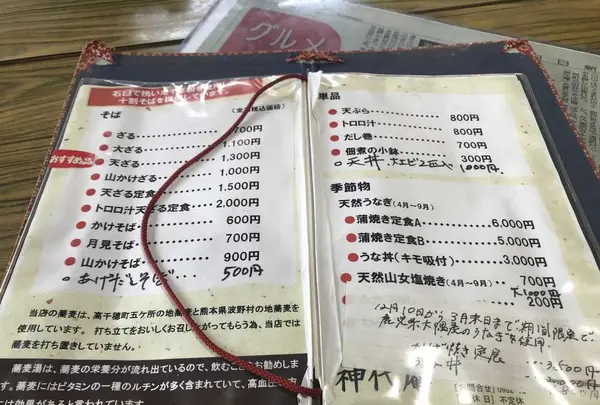 グルメ
石臼で挽いた
十割そばを
(全て税込価格)
そば
ざる 700円
大ざる 1,100円
おすすめ品
天ざる 1,300円
山かけざる 1,000円
天ざる定食 1,500円
トロロ汁天ざる定食 2,000円
かけそば 600円
月見そば 700円
山かけそば 900円
500円
当店の蕎麦は、高千穂町五ケ所の地蕎麦と熊本県波野村の地蕎麦を
使用しています。打ち立てをおいしくお召し上がってもらう為、当店では
蕎麦を打ち置きしていません。
蕎麦湯は、蕎麦の栄養分が流れ出ているので、飲むことをお勧めしま
す。蕎麦にはビタミンの一種のルチンが多く含まれていて、高血圧
には効果があると言われています。
単品
天ぷら 800円
トロロ汁 800円
だし巻 700円
佃煮の小鉢 300円
天丼 エビ2匹入 1000円
季節物
天然うなぎ(4月〜9月)
蒲焼き定食A 6,000円
蒲焼き定食B 5,000円
うな丼(キモ吸付) 3,000円
天然山女塩焼き(4月〜9月) 700円
大1000円
200円
12月10日から3月末日まで期間限定で
鹿児島大隅産のうなぎを使用
3,500円
神代
【お問合せ】
休日】不定休